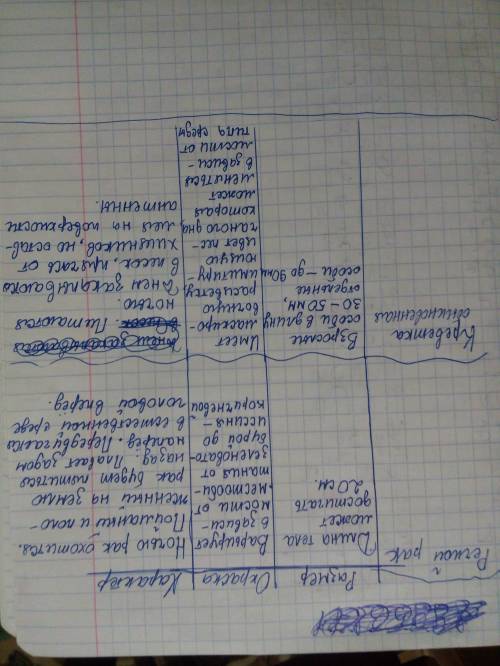 Размер
Окраска
Характер
Речной рак
Длина тела
может
достигать
20 см.
Варьирует
в зависи-
мости от
местооби-
тания от
зеленовато-
бурой до
иссиня-
коричневой
Ночью рак охотится.
Пойманный и поло-
женный на землю
рак будет пятиться
назад. Плавает задом
наперед. Передвигается
в естественной среде
головой вперед.
Креветка
обыкновенная
Взрослые
особи в длину
30-50 мм,
отдельные
особи - до 90мм
Имеет
маскиро-
вочную
расцветку
имитиру-
ющую
цвет пес-
чаного дна,
которая
может
меняться
в зависи-
мости от
типа среды
Питаются
ночью.
Днем закапываются
в песок, прячась от
хищников, не остав-
ляя на поверхности
антенны.